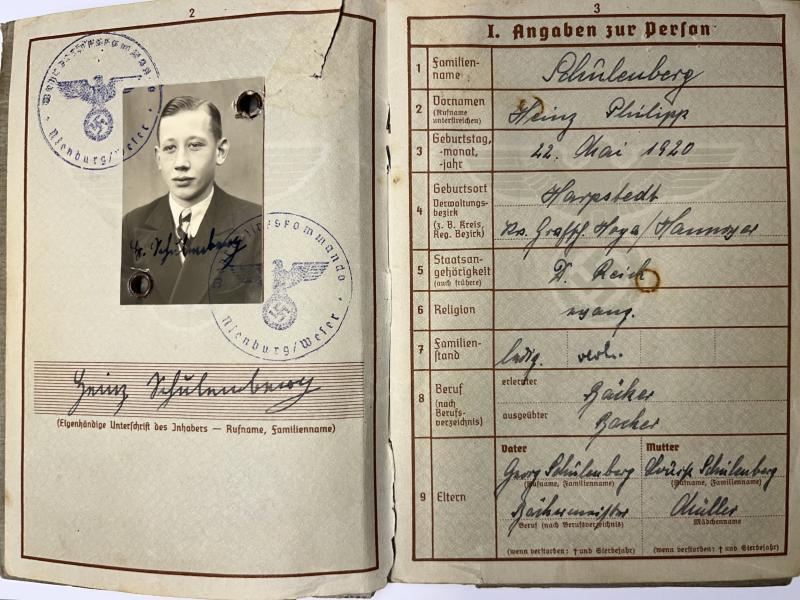 2
Wehrbezirkskommando
Nienburg/Weser
H. Schulenberg
Wehrbezirkskommando
Nienburg/Weser
Heinz Schulenberg
(Eigenhändige Unterschrift des Inhabers — Rufname, Familienname)
3
I. Angaben zur Person
1 Familien-
name
Schulenberg
2 Vornamen
(Rufname
unterstreichen)
Heinz Philipp
3 Geburtstag,
-monat,
-jahr
22. Mai 1920
4 Geburtsort
Verwaltungs-
bezirk
(z. B. Kreis,
Reg. Bezirk)
Harpstedt
Krs. Grafsch. Hoya/Hannover
5 Staatsan-
gehörigkeit
(auch frühere)
D. Reich
6 Religion
evang.
7 Familien-
stand
ledig. verh.
8 Beruf
(nach
Berufs-
verzeichnis)
erlernter
Bäcker
ausgeübter
Bäcker
9 Eltern
Vater Mutter
Georg Schulenberg Luise Schulenberg
(Rufname, Familienname) (Rufname, Familienname)
Bäckermeister Müller
Beruf (nach Berufsverzeichnis) Mädchenname
(wenn verstorben: † und Sterbejahr) (wenn verstorben: † und Sterbejahr)